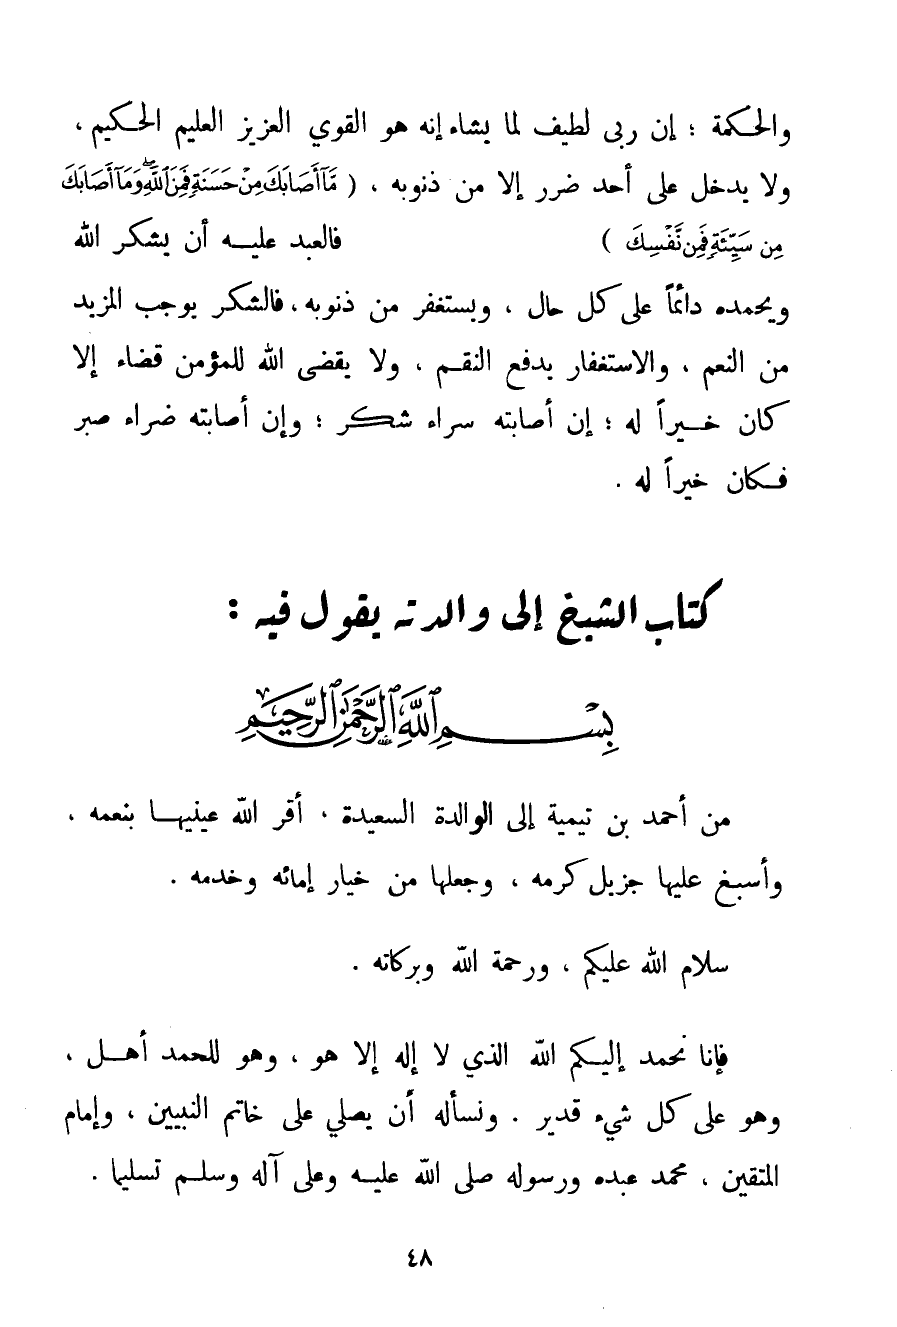 والحكمة ؛ إن ربى لطيف لما يشاء إنه هو القوي العزيز العليم الحكيم ،
ولا يدخل على أحد ضرر إلا من ذنوبه ، ( مَّآ أَصَابَكَ مِنْ حَسَنَةٍ فَمِنَ ٱللَّهِ ۖ وَمَآ أَصَابَكَ
مِن سَيِّئَةٍ فَمِن نَّفْسِكَ ) فالعبد عليه أن يشكر الله
ويحمده دائماً على كل حال ، ويستغفر من ذنوبه ، فالشكر يوجب المزيد
من النعم ، والاستغفار يدفع النقم ، ولا يقضى الله للمؤمن قضاء إلا
كان خيراً له ؛ إن أصابته سراء شكر ؛ وإن أصابته ضراء صبر
فكان خيراً له .
كتاب الشيخ إلى والدته يقول فيه :
بِسْمِ ٱللَّهِ ٱلرَّحْمَٰنِ ٱلرَّحِيمِ
من أحمد بن تيمية إلى الوالدة السعيدة ، أقر الله عينيها بنعمه ،
وأسبغ عليها جزيل كرمه ، وجعلها من خيار إمائه وخدمه .
سلام الله عليكم ، ورحمة الله وبركاته .
فإنا نحمد إليكم الله الذي لا إله إلا هو ، وهو للحمد أهل ،
وهو على كل شيء قدير . ونسأله أن يصلي على خاتم النبيين ، وإمام
المتقين ، محمد عبده ورسوله صلى الله عليه وعلى آله وسلم تسليما .
٤٨